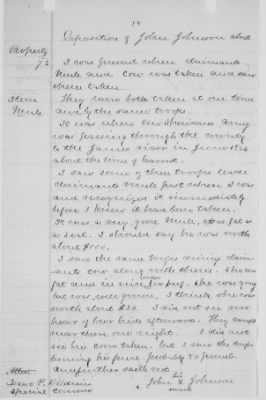 Deposition of John Johnson about
Property
I was present when claimants
Mule and Cow was taken and saw
them taken.
Item
Mule
They were both taken at one time
and by the same troops.
It was when Gen Sheridans Army
was passing through the county
to the James river in June 1864
about the time of harvest.
I saw some of these troops lead
claimants mule first when I was
and recognized it immediately
before I knew it have been taken.
It was a very good Mule, and fat
as a seal. I should say he was worth
about $100.
I saw the same troops driving claim-
ants cow along with theirs. She was
fat and in nice, for beef. She was young
but was well grown, I think she was
worth about $30. I did not see nor
hear of her hide afterward. They camped
near then one night. I did not
see his corn taken. but I saw the troops
burning his fence.
and further saith not
Attest
Isaac P. Baldwin
Special Commr
John his X Johnson
mark